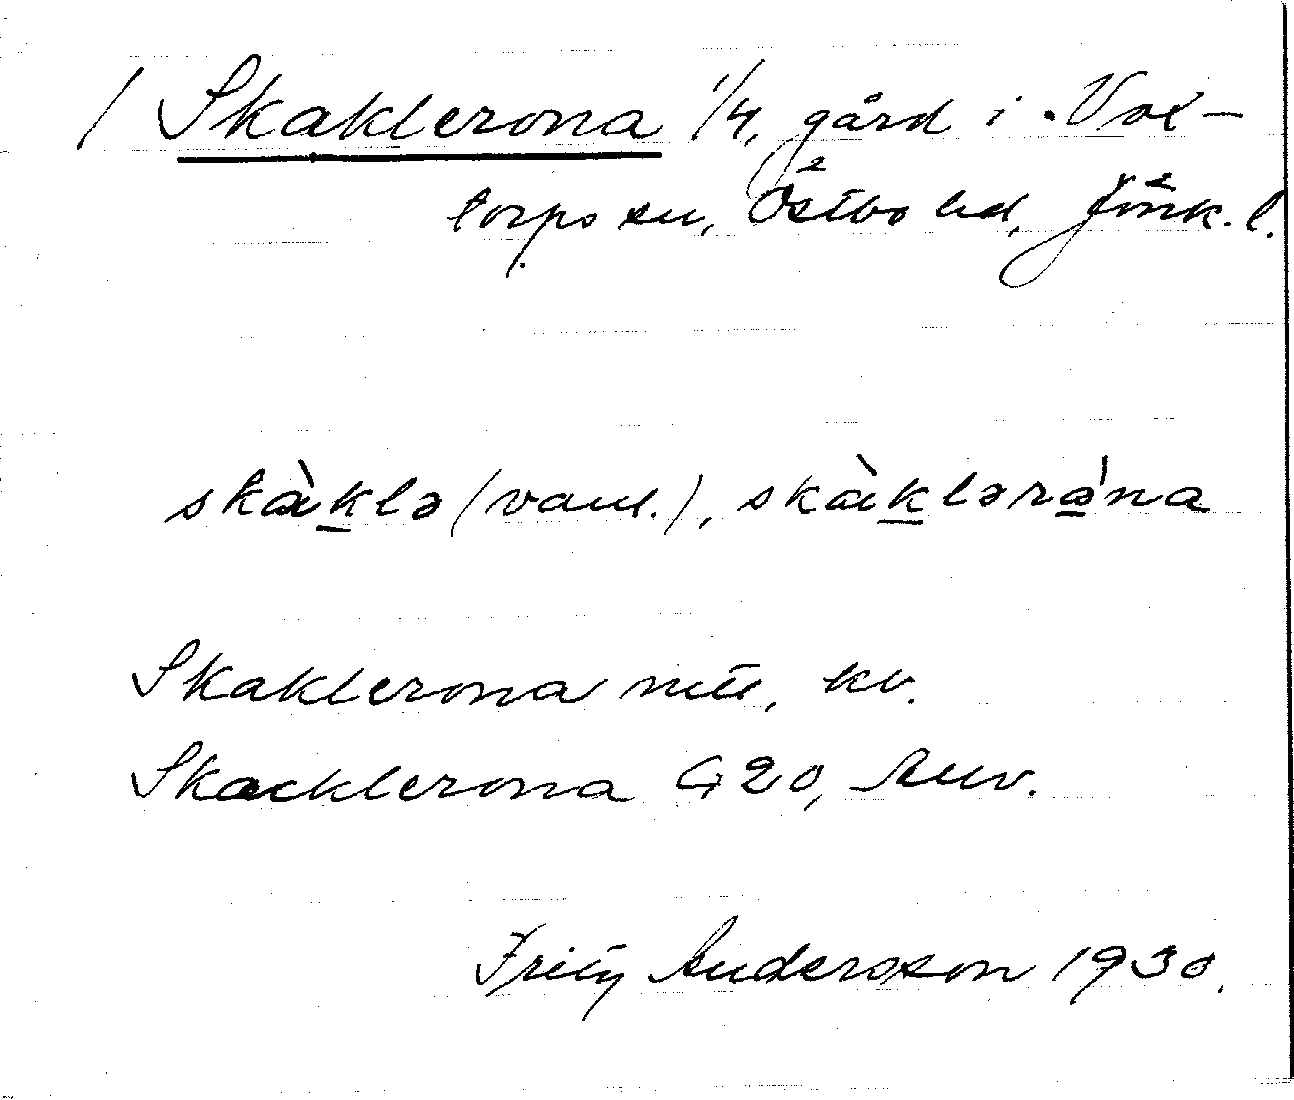 / Skaklerona 1/4, gård i Vox-
torps sn, Östbo hd, Jönk. l.
skàklə (vanl.), skàkləràna
Skaklerona mtl, kv.
Skacklerona G20, Anv.
Fritz Andersson 1930.